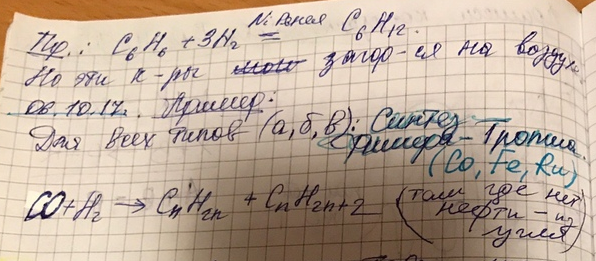 Пр.: C6H6 + 3H2 Ni Ренея = C6H12.
Но эти к-ры загор-ся на воздухе
06.10.17. Пример:
Для всех типов (а, б, в): Синтез
Фишера-Тропша.
(Co, Fe, Ru)
CO + H2 → CnH2n + CnH2n+2 (там где нет
нефти - из
угля)